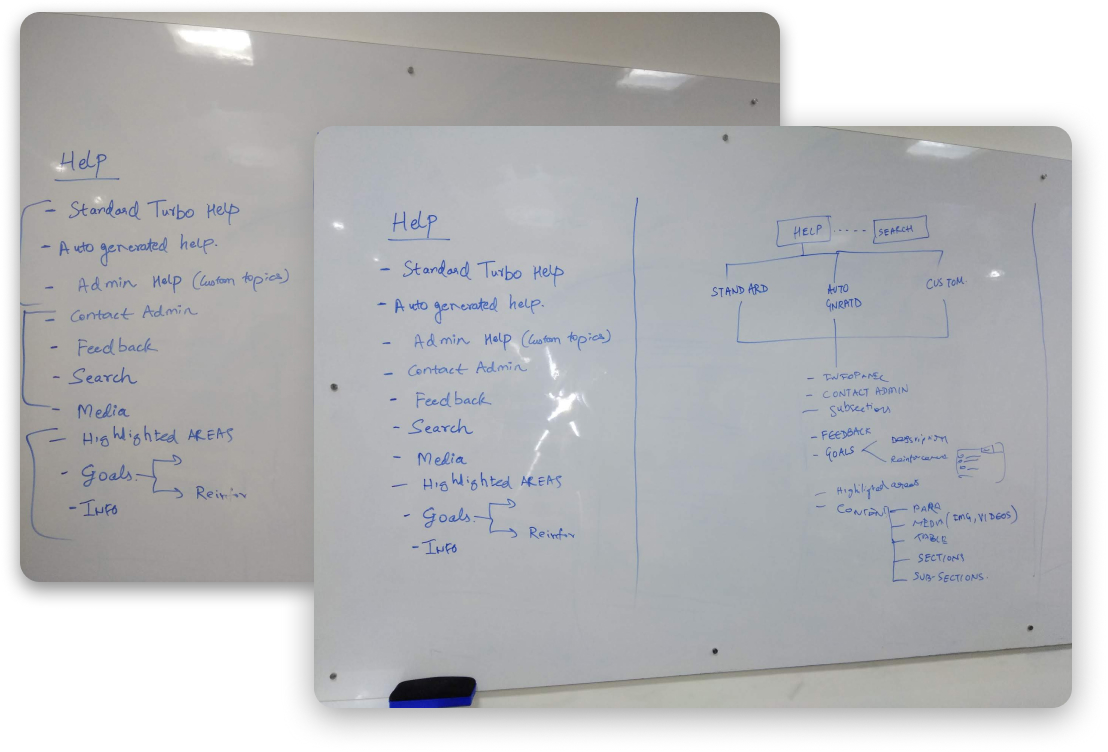 Help
- Standard Turbo Help
- Auto generated help.
- Admin Help (Custom topics)
- Contact Admin
- Feedback
- Search
- Media
- Highlighted AREAS
- Goals
Reinfor
- INFO
Help
- Standard Turbo Help
- Auto generated help.
- Admin Help (Custom topics)
- Contact Admin
- Feedback
- Search
- Media
- Highlighted AREAS
- Goals
Reinfor
- INFO
HELP ..... SEARCH
STANDARD
AUTO
GNRATD
CUSTOM
- INFOPANEL
- CONTACT ADMIN
- Subsections
- FEEDBACK
- GOALS
Description
Reinforcement
- Highlighted areas
- CONTENT
- PARA
- MEDIA (IMG, VIDEOS)
- TABLE
- SECTIONS
- SUB-SECTIONS.